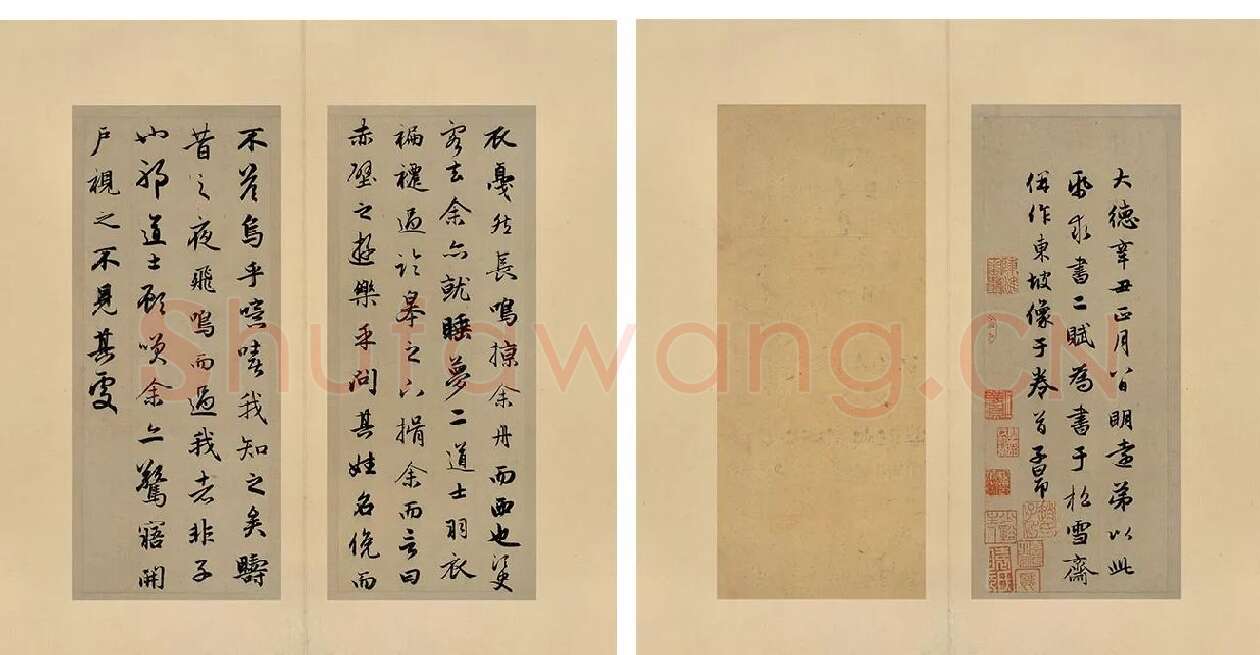 衣戛然長鳴掠余舟而西也須臾
客去余亦就睡夢二道士羽衣
褊褼過臨皋之下揖余而言曰
赤壁之遊樂乎問其姓名俛而
不答烏乎噫嘻我知之矣疇
昔之夜飛鳴而過我者非子
也邪道士顧笑余亦驚寤開
戶視之不見其處
大德辛丑正月八日明遠弟以此
紙求書二賦為書于松雪齋
併作東坡像于卷首子昂
Shufawang.CN